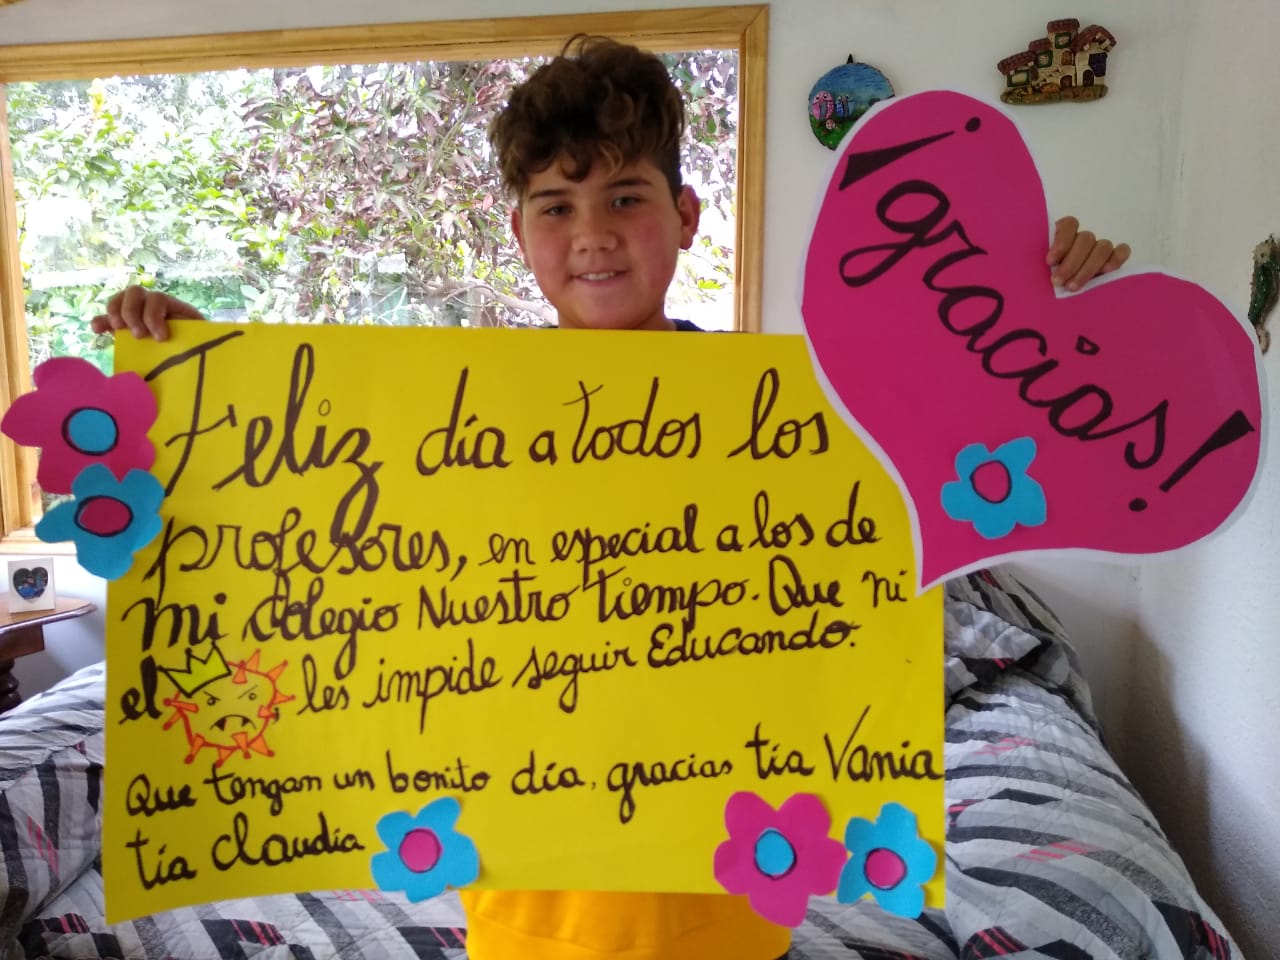 Feliz día a todos los
profesores, en especial a los de
mi colegio Nuestro tiempo. Que ni
el les impide seguir Educando.
Que tengan un bonito día, gracias tía Vania
tía Claudia
¡gracias!